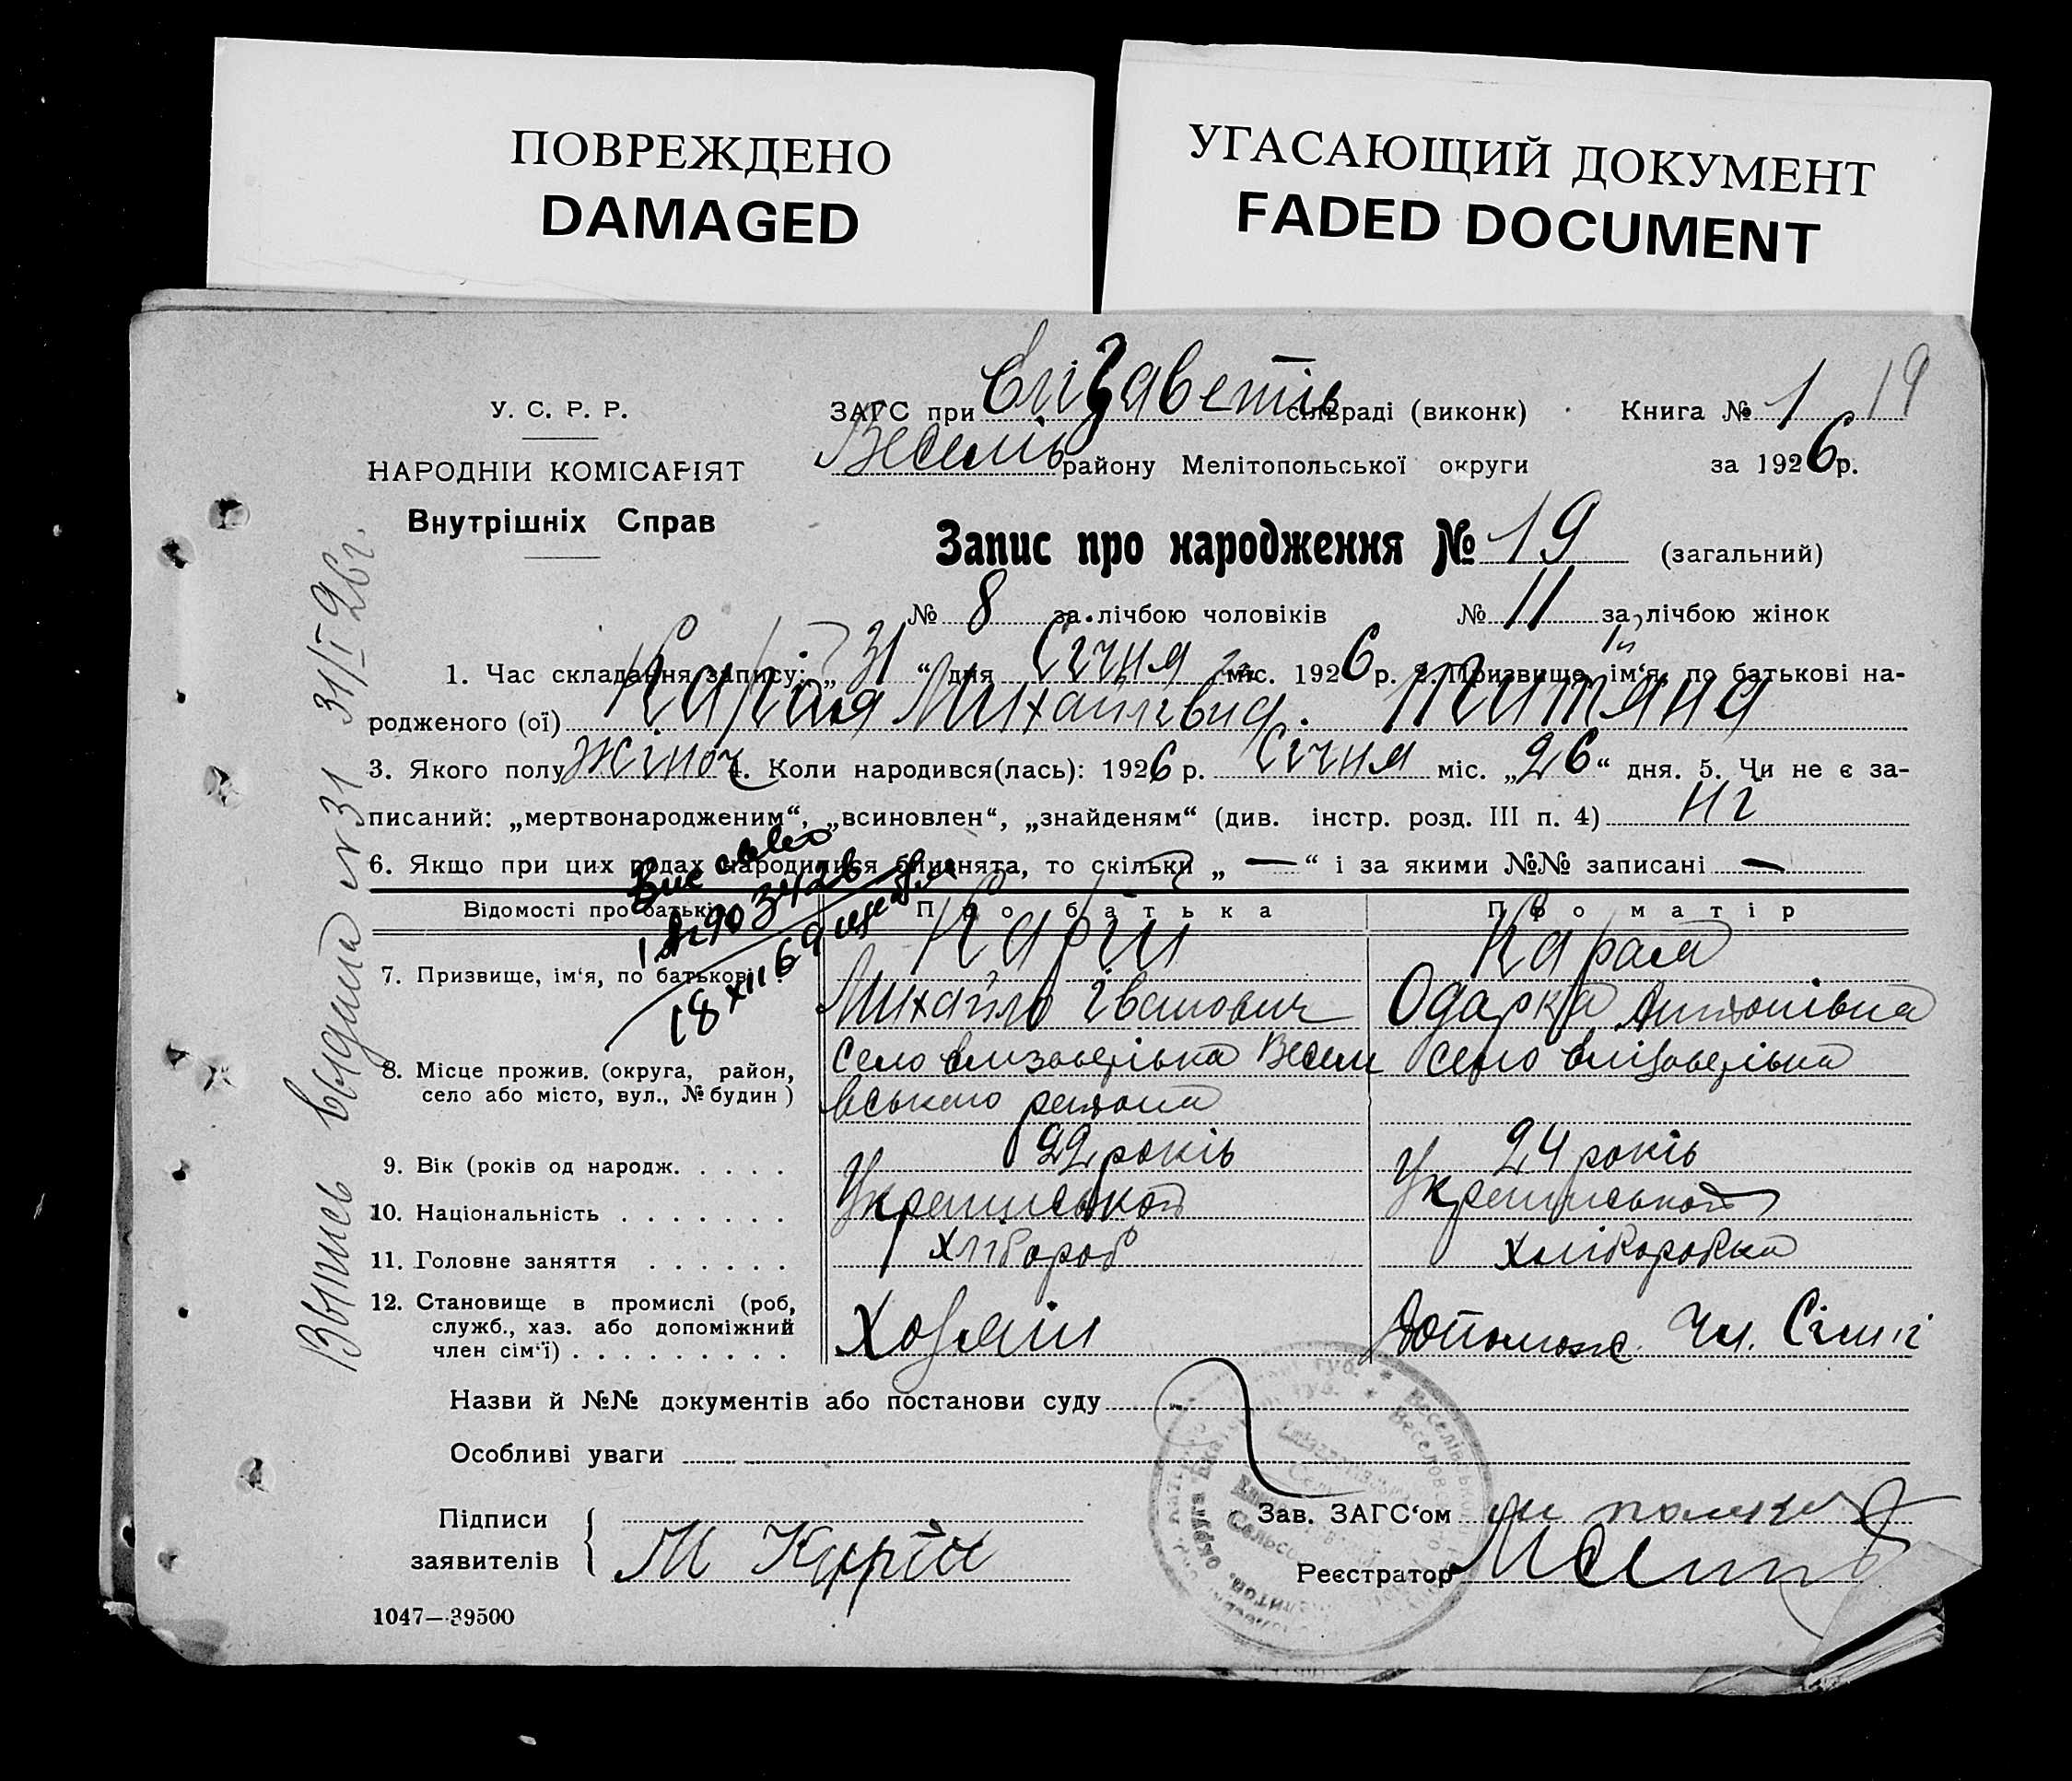 ПОВРЕЖДЕНО
DAMAGED
УГАСАЮЩИЙ ДОКУМЕНТ
FADED DOCUMENT
У. С. Р. Р.
НАРОДНІЙ КОМІСАРІЯТ
Внутрішніх Справ
ЗАГС при Єлізаветів сільраді (виконк) Книга № 1 19
Веселів району Мелітопольської округи за 1926 р.
Запис про народження № 19 (загальний)
№ 8 за лічбою чоловіків № 11 за лічбою жінок
1. Час складання запису: „31“ дня Січня міс. 1926 р. 2. Призвище, ім‘я, по батькові на-
родженого (ої) Михайлівна Титяна
3. Якого полу жіноч 4. Коли народився(лась): 1926 р. Січня міс. „26“ дня. 5. Чи не є за-
писаний: „мертвонародженим“, „всиновлен“, „знайденям“ (див. інстр. розд. III п. 4) Ні
6. Якщо при цих родах народилися близнята, то скільки „ — “ і за якими №№ записані —
Відомості про батьків Про батька Про матір
7. Призвище, ім‘я, по батькові Михайло Іванович Одарка Антонівна
8. Місце прожив. (округа, район, село або місто, вул., № будин) село Єлизаветівка Весели вського района село Єлізаветівка
9. Вік (років од народж. 22 років 24 років
10. Національність Українськой Українськой
11. Головне заняття хлібороб хліборобка
12. Становище в промислі (роб, служб., хаз. або допоміжний член сім‘ї) Хозяін допомож. Чл. Сімї
Назви й №№ документів або постанови суду
Особливі уваги
Підписи
заявителів М
Зав. ЗАГС‘ом
Реєстратор
1047—39500
Выпись выдана № 31 31/I 26 г.